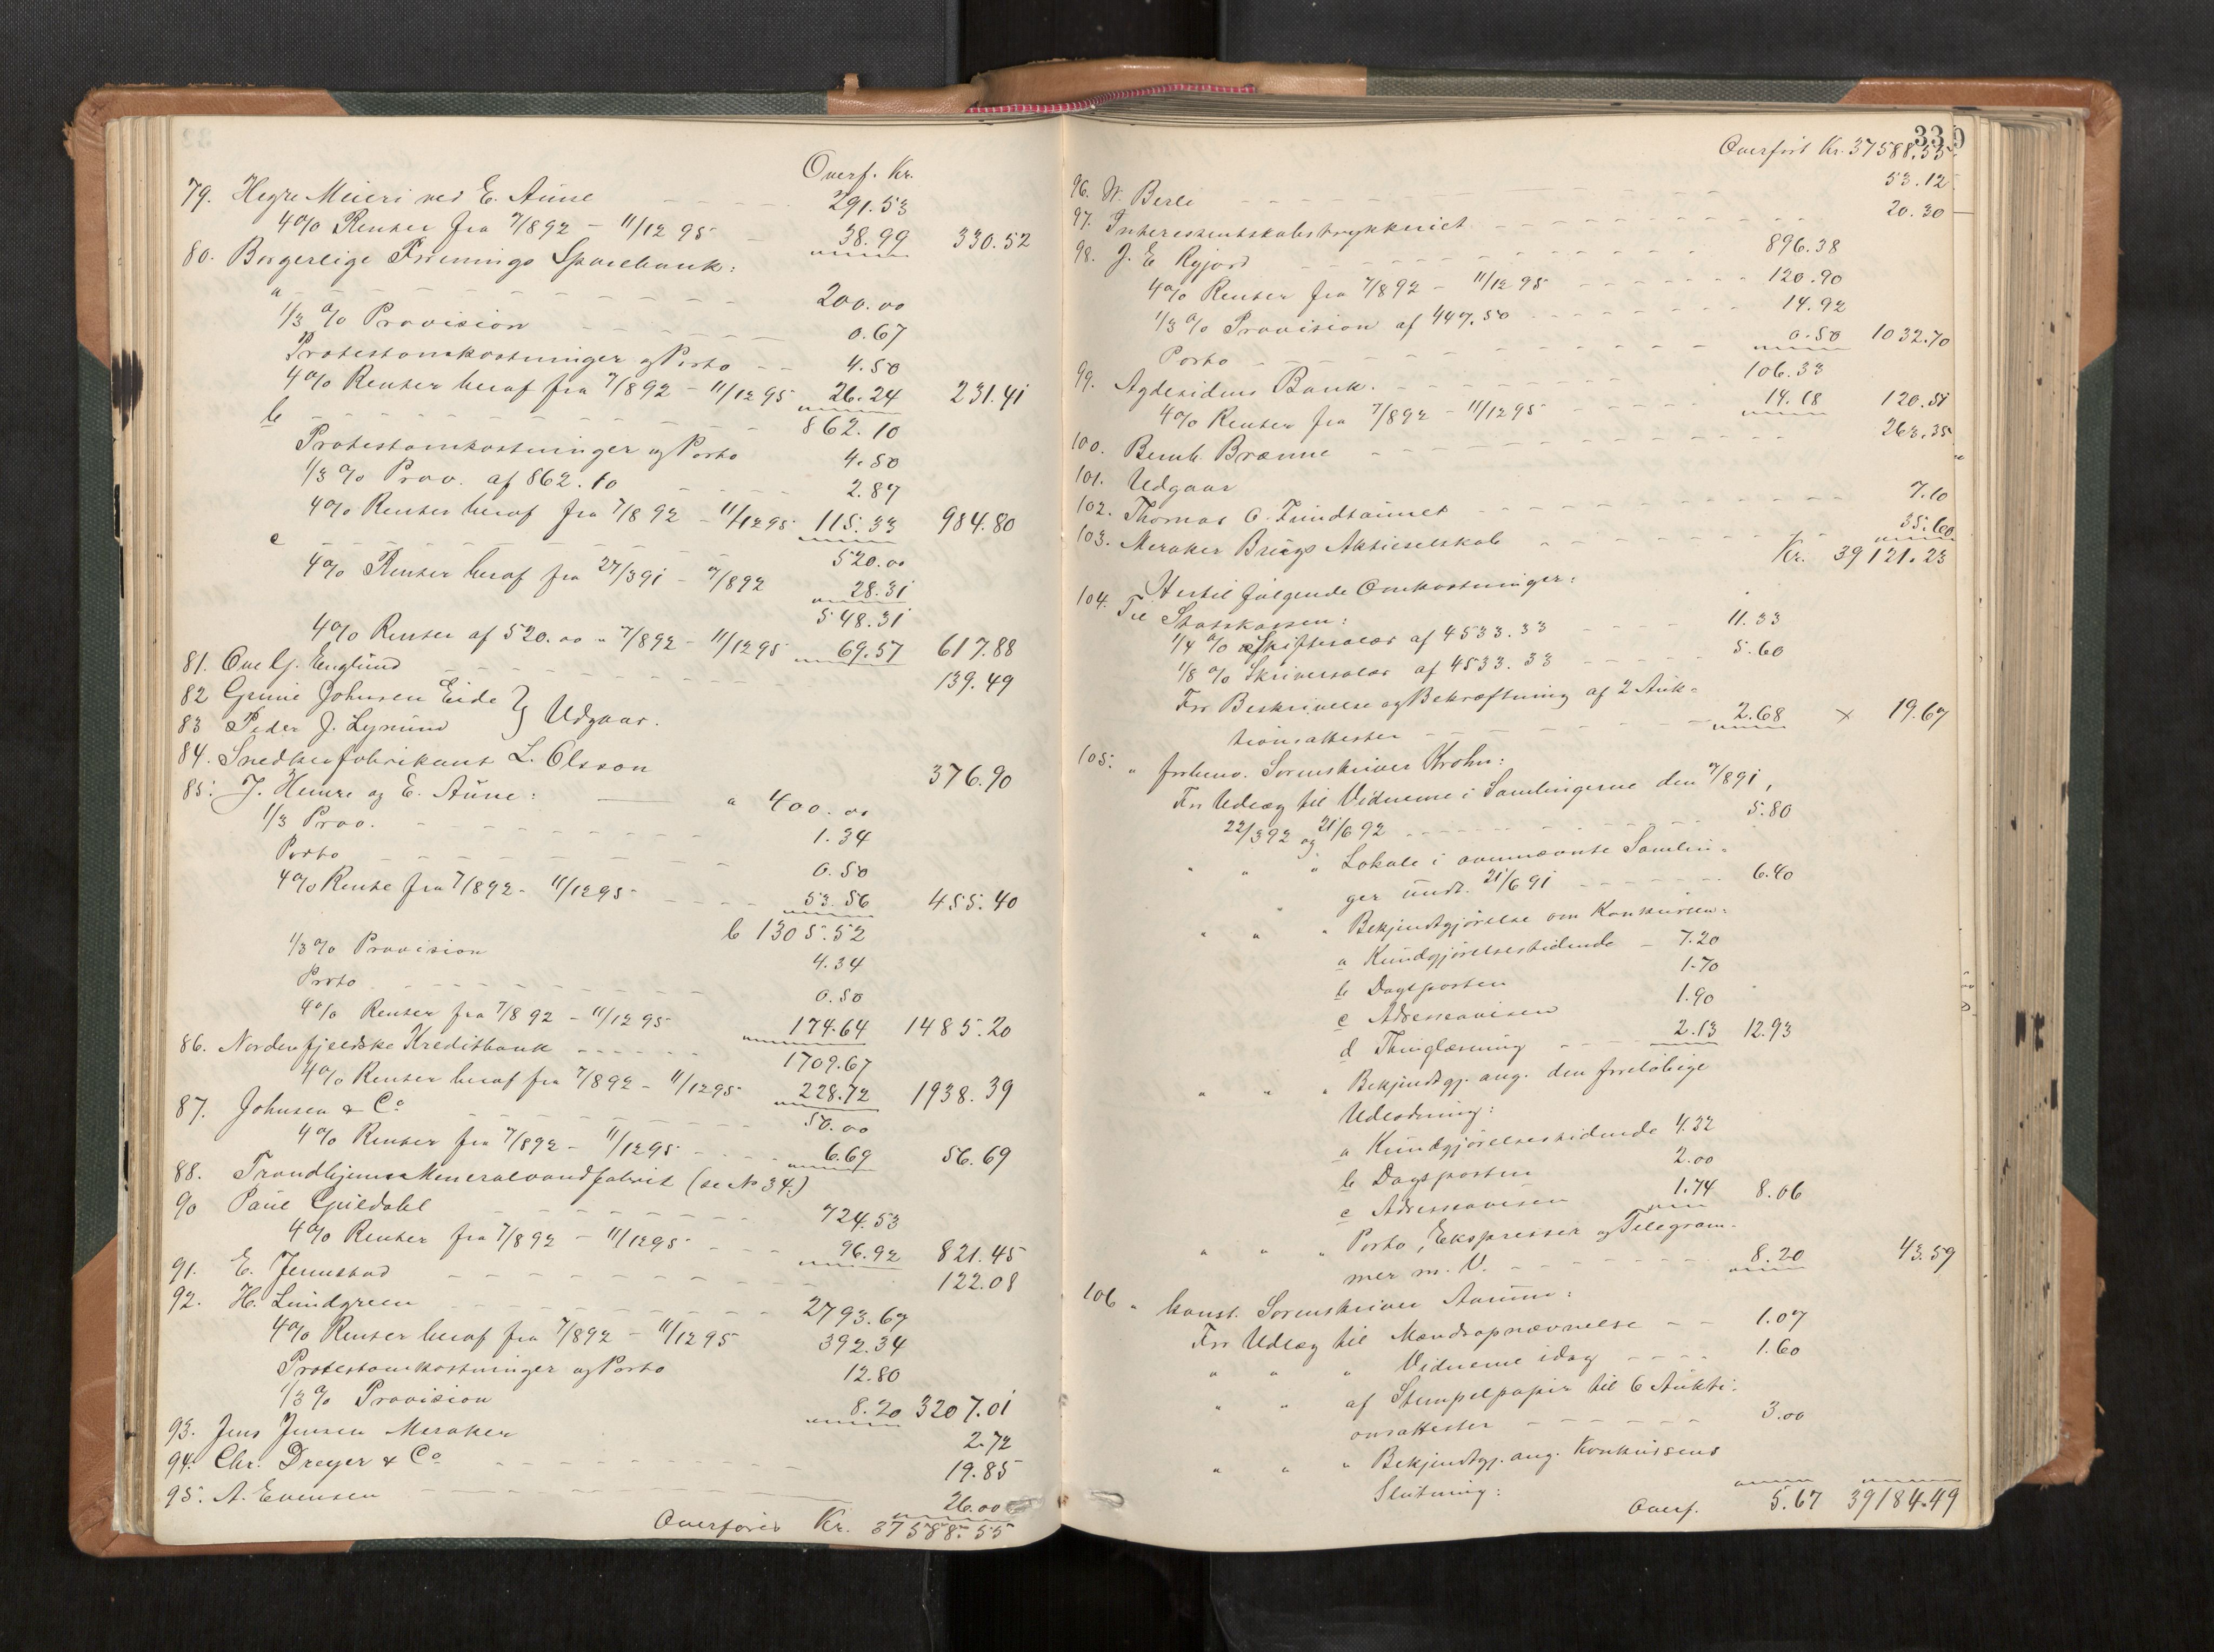 Overf. Kr.
79. Hegre Meieri ved E. Aune 291.53
4% Renter fra 7/8 92 - 11/12 95 38.99 330.52
80. Borgerlige Forenings Sparebank:
a 200.00
1/3 % Provision 0.67
Protestomkostninger og Porto 4.50
4% Renter heraf fra 7/8 92 - 11/12 95 26.24 231.41
b 862.10
Protestomkostninger og Porto 4.50
1/3 % Prov. af 862.10 2.87
4% Renter heraf fra 7/8 92 - 11/12 95 115.33 984.80
c 520.00
4% Renter heraf fra 27/3 91 - 7/8 92 28.31
548.31
4% Renter af 520.00 " 7/8 92 - 11/12 95 69.57 617.88
81. Ole Englund 139.49
82 Johnsen Eide } Udgaar.
83 Peder J.
84. Snedkerfabrikant L. Olsson 376.90
85. J. og E. Aune: a 400.00
1/3 Prov. 1.34
Porto 0.50
4% Rente fra 7/8 92 - 11/12 95 53.56 455.40
b 1305.52
1/3 % Provision 4.34
Porto 0.50
4% Renter fra 7/8 92 - 11/12 95 174.64 1485.20
86. Nordenfjeldske Kreditbank 1709.67
4% Renter heraf fra 7/8 92 - 11/12 95 228.72 1938.39
87. Johnsen & Co 50.00
4% Renter fra 7/8 92 - 11/12 95 6.69 56.69
88. Trondhjems Mineralvandfabrik (se No 34.)
90 Paul Guldahl 724.53
4% Renter fra 7/8 92 - 11/12 95 96.92 821.45
91. E. Jennstad 122.08
92. H. Lundgreen 2793.67
4% Renter heraf fra 7/8 92 - 11/12 95 392.34
Protestomkostninger og Porto 12.80
1/3 % Provision 8.20 3207.01
93. Jens Jensen Meraker 2.72
94. Chr. Dreyer & Co 19.85
95. A. Evensen 26.00
Overføres Kr. 37588.55
339
Overført Kr. 37588.55
96. W. Berli 53.12
97. Interessentskabstrykkeriet 20.30
98. J. E. 896.38
4% Renter fra 7/8 92 - 11/12 95 120.90
1/3 % Provision af 447.50 14.92
Porto 0.50 1032.70
99. Agdesidens Bank. 106.33
4% Renter fra 7/8 92 - 11/12 95 14.18 120.51
100. Bernh. Brænne 263.35
101. Udgaar "
102. Thomas 7.10
103. Meraker Brugs Aktieselskab 35.60
Kr. 39121.23
Hertil følgende Omkostninger:
104. Til Statskassen:
1/4 % Skiftesalær af 4533.33 11.33
1/8 % Skriversalær af 4533.33 5.60
For Beskrivelse og Bekræftning af 2 Auk-
tionsattester 2.68 x 19.67
105. " forhenv. Sorenskriver Krohn:
For Udlæg til Vidnerne i Samlingerne den 7/8 91,
22/3 92 og 21/6 92 5.80
" " " Lokale i ovennævnte Samlin-
ger undt. 21/6 91 6.40
" " " Bekjendtgjørelse om Konkursen:
a Kundgjørelsestidende 7.20
b Dagsposten 1.70
c Adresseavisen 1.90
d Thinglæsning 2.13 12.93
" " " Bekjendtgj. ang. den foreløbige
Udlodning:
a Kundgjørelsestidende 4.32
b Dagsposten 2.00
c Adresseavisen 1.74 8.06
" " " Porto, Ekspresser og Telegram-
mer m. V. 8.20 43.59
106 " konst. Sorenskriver
For Udlæg til Mandsopnævnelse 1.07
" " " Vidnerne idag 1.60
" " af Stempelpapir til 6 Aukti-
onsattester 3.00
" " " Bekjendtgj. ang. Konkursens
Slutning:
Overf. 5.67 39184.49